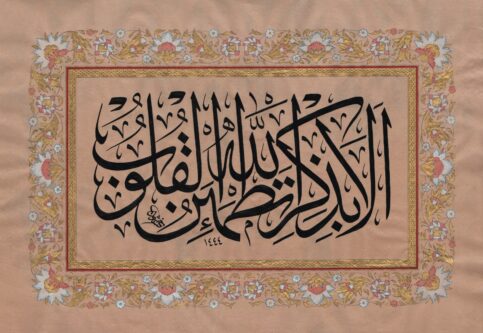 أَلَا بِذِكْرِ اللَّهِ تَطْمَئِنُّ الْقُلُوبُ
١٤٤٤